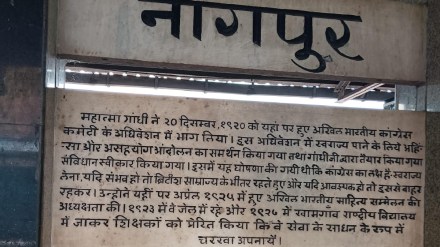 नागपुर
महात्मा गांधी ने २० दिसम्बर,१९२० को यहां पर हुए अखिल भारतीय कांग्रेस
कमेटी के अधिवेशन में भाग लिया। इस अधिवेशन में स्वराज्य पाने के लिये अहिं-
सा और असहयोग आंदोलन का समर्थन किया गया तथा गांधीजी द्वारा तैयार किया गया
संविधान स्वीकार किया गया। इसमें यह घोषणा की गयी थी कि कांग्रेस का लक्ष्य है-स्वराज्य
लेना, यदि संभव हो तो ब्रिटीश साम्राज्य के भीतर रहते हुए और यदि आवश्यक हो तो इससे बाहर
रहकर। उन्होंने यहीं पर अप्रेल १९२५ में हुए अखिल भारतीय साहित्य सम्मेलन की
अध्यक्षता की। १९२३ में वे जेल में रहे और १९२६ में खामगांव राष्ट्रीय विद्यालय
में जाकर शिक्षकों को प्रेरित किया कि वे सेवा के साधन के रूप में
चरखा अपनायें।